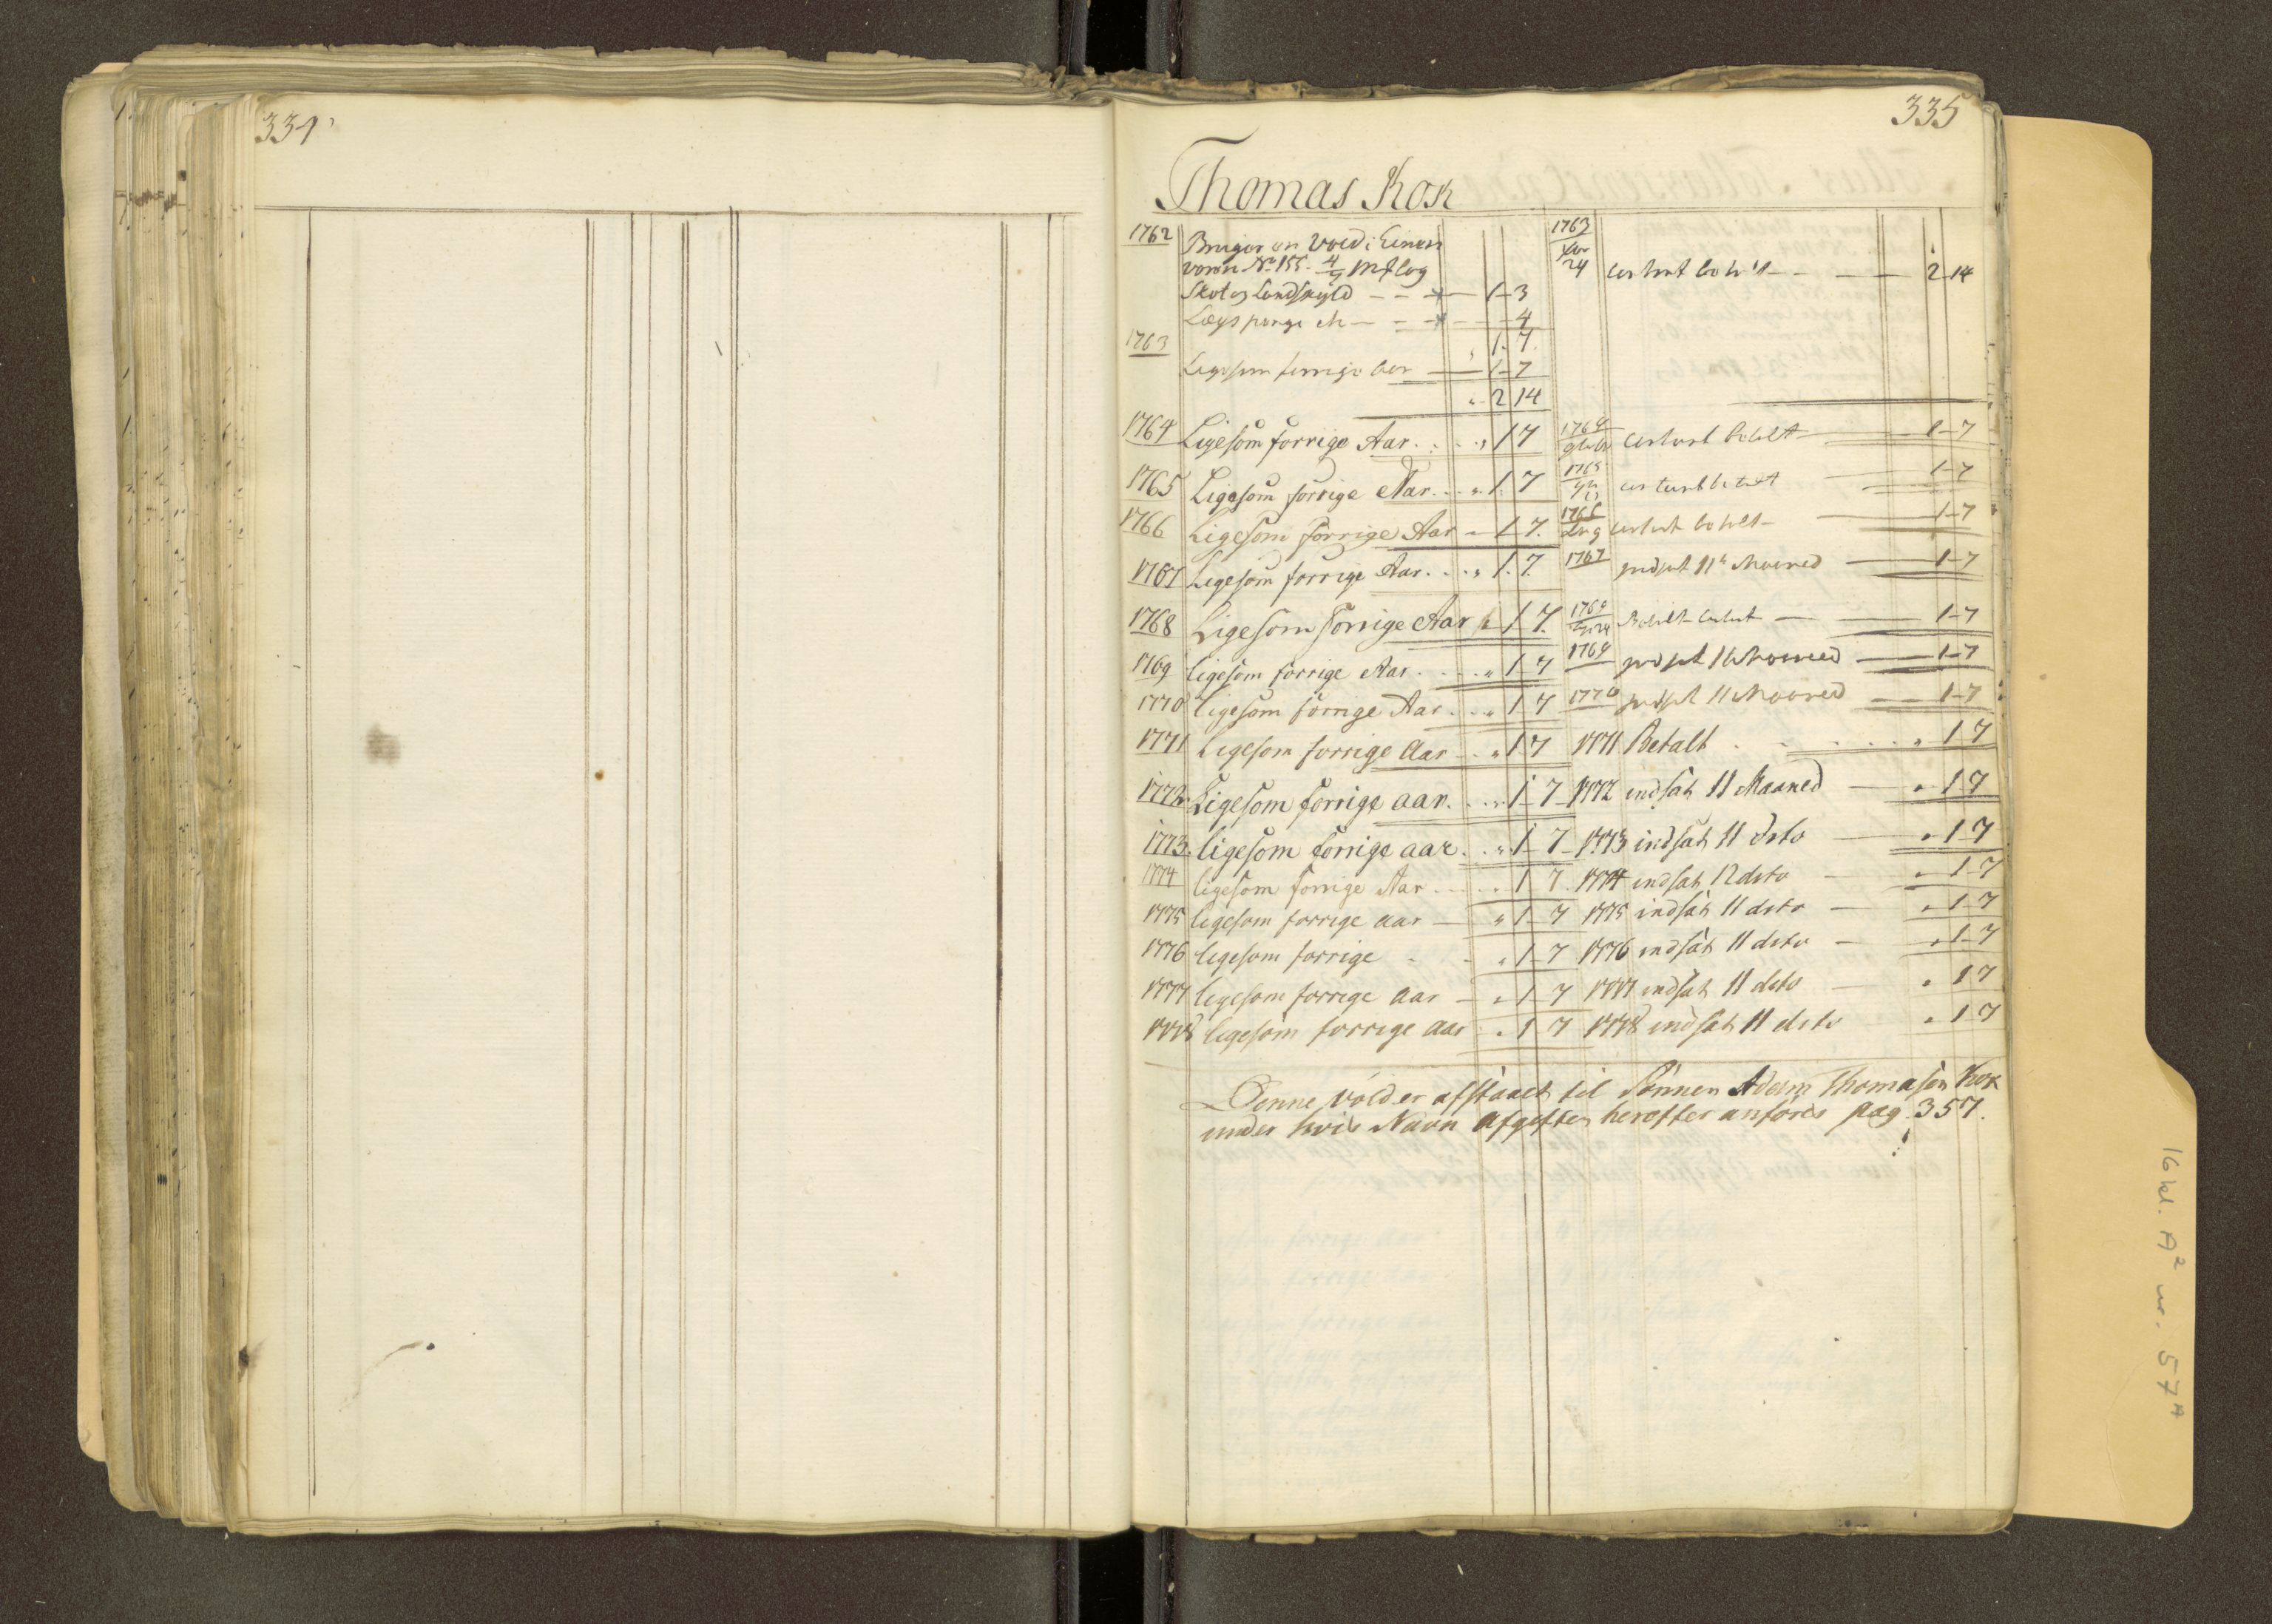 334
335
Thomas Kok
1762 Bruger en Vold i Einers
Nº 155. 4/7 Mk log
Skat og Landskyld — — — 1 - 3
Lægs penge — — — - 4
1 - 7
1763
Ligesom forrige Aar — 1 - 7
2 14
1763
24 contant betalt — — 2 14
1764 Ligesom forrige Aar . . . „ 1 7
1764 contant betalt — 1 - 7
1765 Ligesom forrige Aar . . . „ 1. 7
1765 contant betalt — 1 - 7
1766 Ligesom forrige Aar „ 1 7.
1766 contant betalt — 1 - 7
1767 Ligesom forrige Aar . . . „ 1. 7.
1767 indsat 11 Maaned — 1 - 7
1768 Ligesom forrige Aar „ 1 7.
24 Betalt contant — 1 - 7
1769 ligesom forrige Aar . . . . „ 1 - 7
1769 indsat 11 Maaned — 1 - 7
1770 ligesom forrige Aar . . . „ 1 7
1770 indsat 11 Maaned — 1 - 7
1771 Ligesom forrige Aar . . „ 1 7
1771 Betalt . . . . . . . „ 1 7
1772 Ligesom forrige aar . . . „ 1 - 7
1772 indsat 11 Maaned — „ 1 7
1773. ligesom forrige aar . . „ 1 - 7
1773 indsat 11 dito — „ 1 7
1774 ligesom forrige Aar . . . . „ 1 7
1774 indsat 12 dito — „ 1 7
1775 ligesom forrige aar — „ 1 - 7
1775 indsat 11 dito — „ 1 7
1776 ligesom forrige - - „ 1 - 7
1776 indsat 11 dito — „ 1 - 7
1777 ligesom forrige aar — „ 1 - 7
1777 indsat 11 dito — „ 1 7
1778 ligesom forrige aar „ 1 7
1778 indsat 11 dito „ 1 7
Denne vold er afstaaet til Sönnen Adam Thomasön Kok
under hvis Navn Afgiften herefter anföres pag. 357.
16 kl. A² nr. 57A